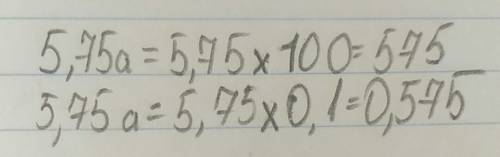 5,75a = 5,75 x 100 = 575
5,75 a = 5,75 x 0,1 = 0,575